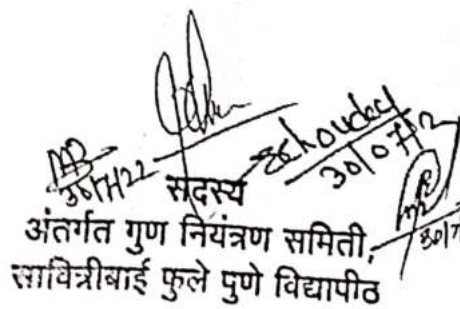 30/7/22
30/07/2
30/7
सदस्य
अंतर्गत गुण नियंत्रण समिती,
सावित्रीबाई फुले पुणे विद्यापीठ